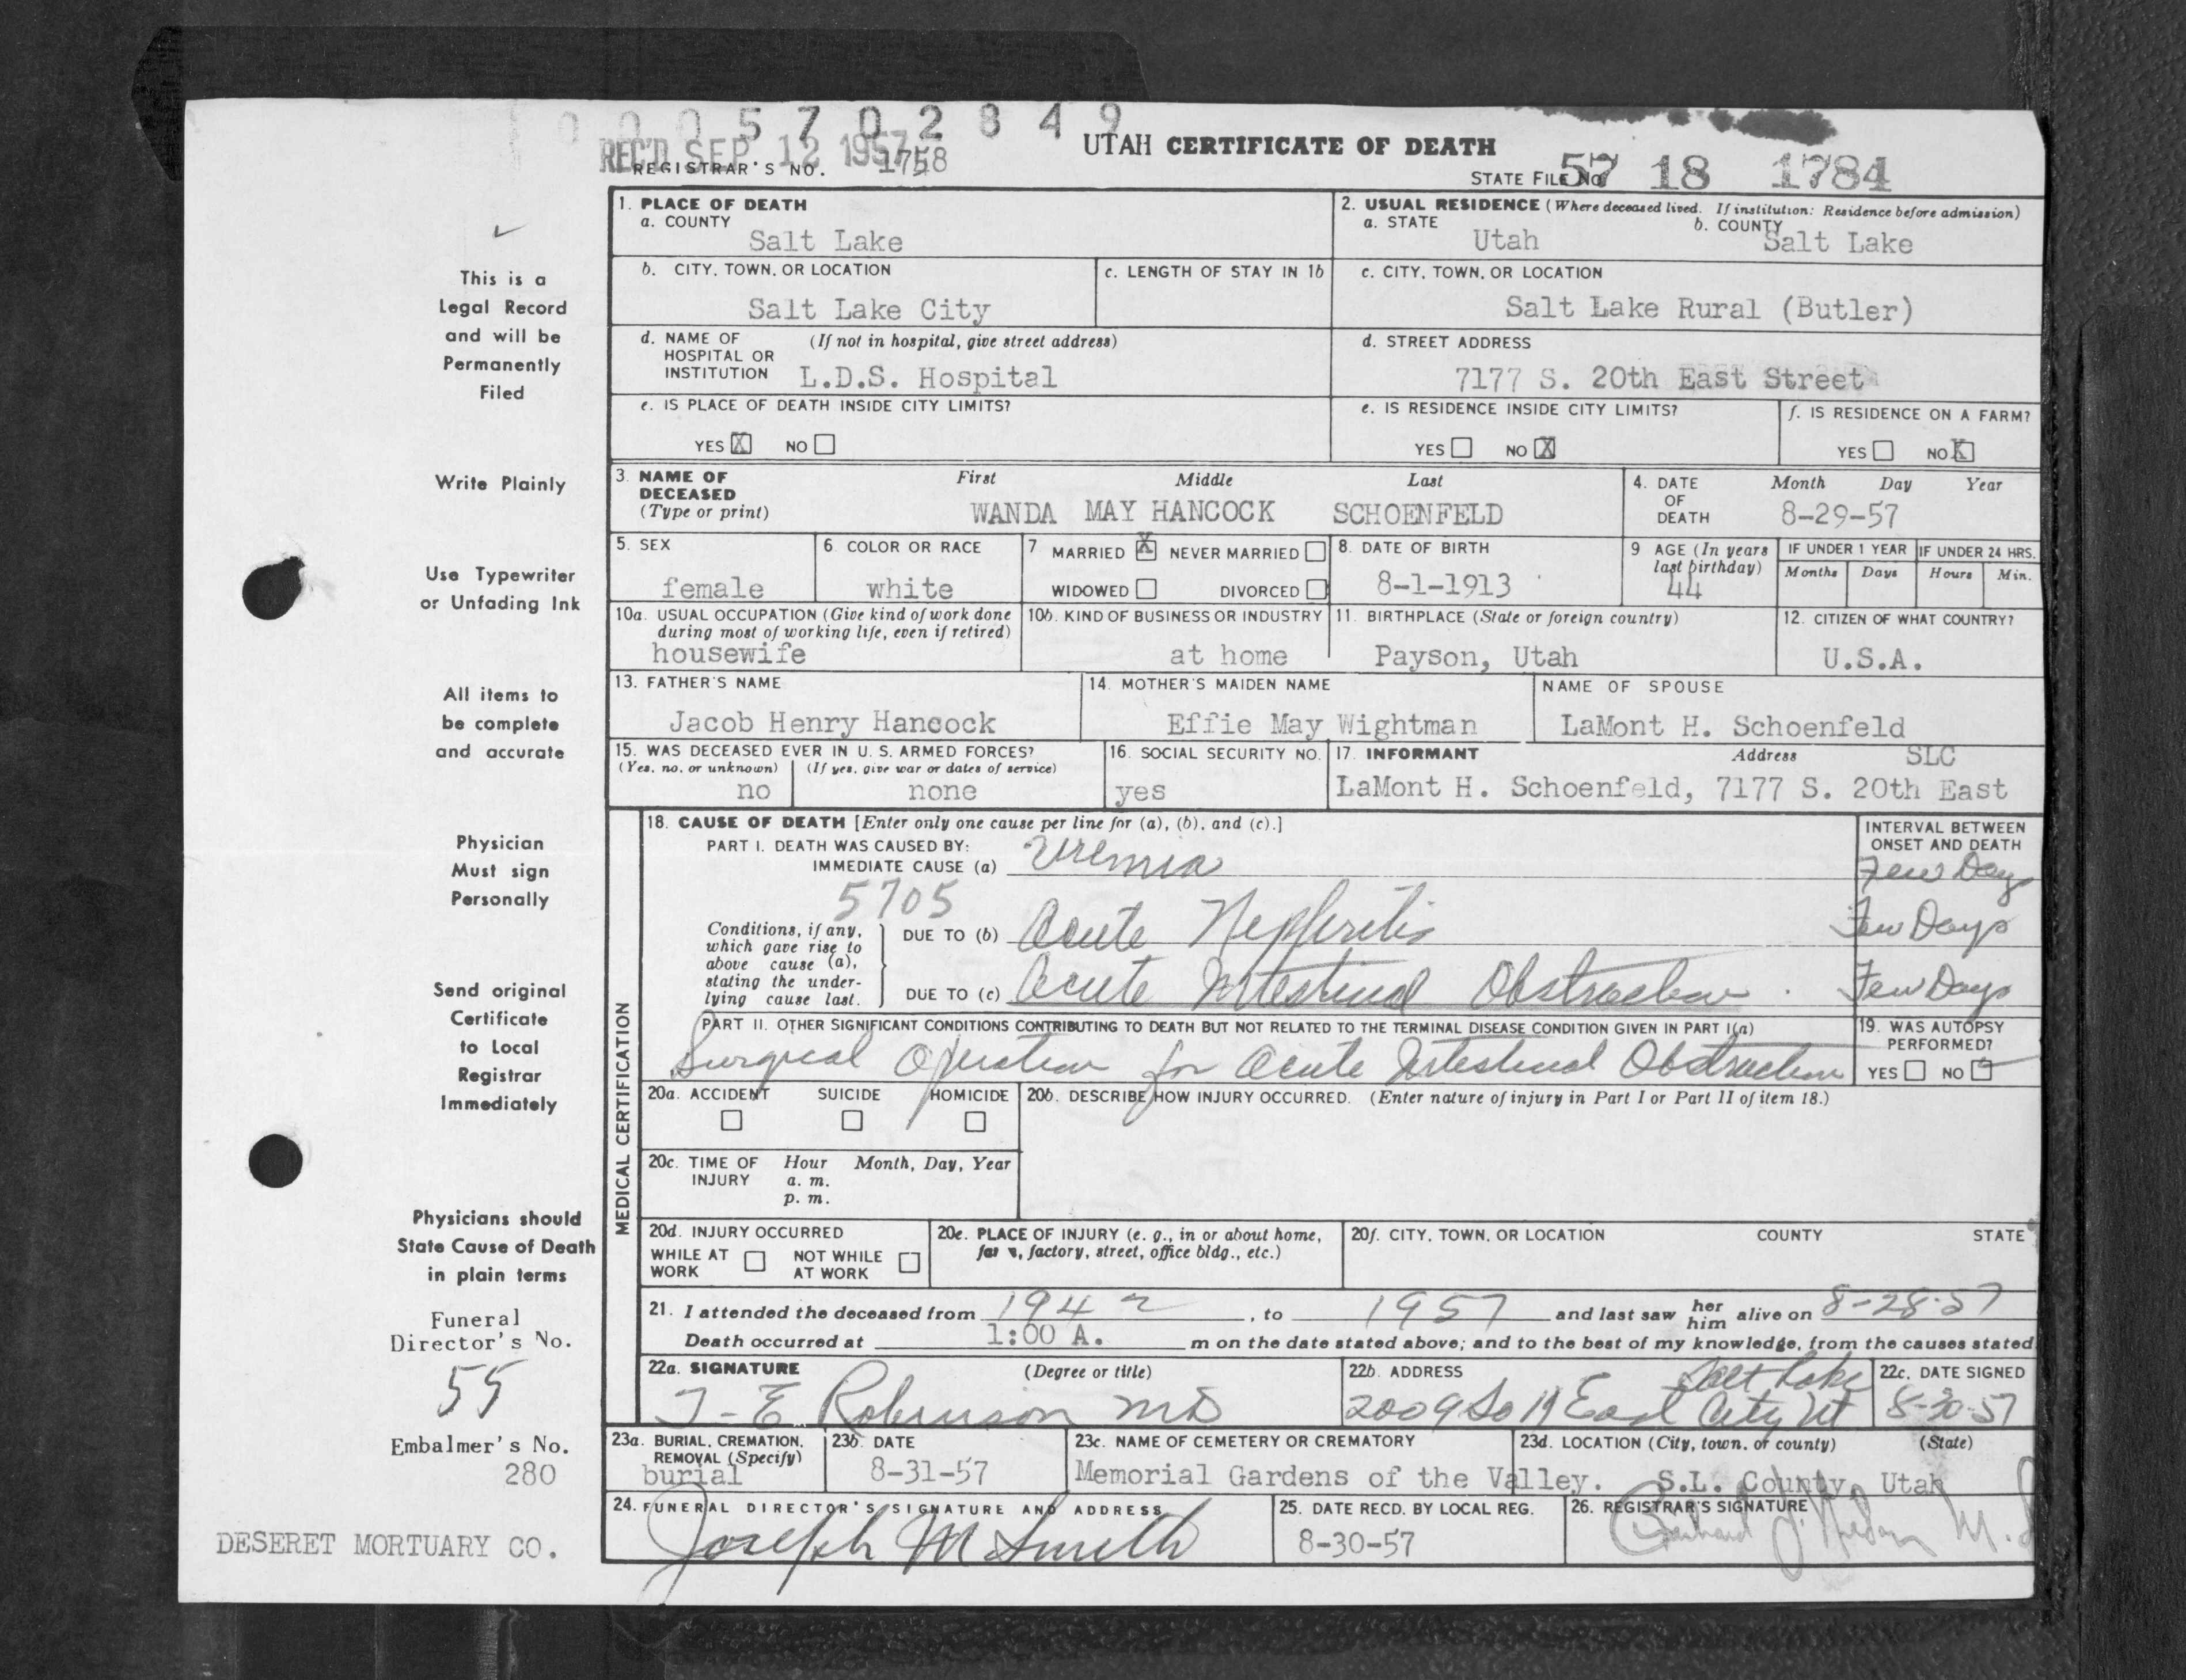 0005702849
REC'D SEP 12 1957
REGISTRAR'S NO. 1758
UTAH CERTIFICATE OF DEATH
STATE FILE NO. 57 18 1784
This is a
Legal Record
and will be
Permanently
Filed
Write Plainly
Use Typewriter
or Unfading Ink
All items to
be complete
and accurate
Physician
Must sign
Personally
Send original
Certificate
to Local
Registrar
Immediately
Physicians should
State Cause of Death
in plain terms
Funeral
Director's No.
55
Embalmer's No.
280
DESERET MORTUARY CO.
1. PLACE OF DEATH
a. COUNTY
Salt Lake
2. USUAL RESIDENCE (Where deceased lived. If institution: Residence before admission)
a. STATE
Utah
b. COUNTY
Salt Lake
b. CITY, TOWN, OR LOCATION
Salt Lake City
c. LENGTH OF STAY IN 1b
c. CITY, TOWN, OR LOCATION
Salt Lake Rural (Butler)
d. NAME OF (If not in hospital, give street address)
HOSPITAL OR
INSTITUTION L.D.S. Hospital
d. STREET ADDRESS
7177 S. 20th East Street
e. IS PLACE OF DEATH INSIDE CITY LIMITS?
YES X NO
e. IS RESIDENCE INSIDE CITY LIMITS?
YES NO X
f. IS RESIDENCE ON A FARM?
YES NO X
3. NAME OF DECEASED
(Type or print)
First Middle Last
WANDA MAY HANCOCK SCHOENFELD
4. DATE OF DEATH
Month Day Year
8-29-57
5. SEX
female
6. COLOR OR RACE
white
7 MARRIED X NEVER MARRIED
WIDOWED DIVORCED
8. DATE OF BIRTH
8-1-1913
9 AGE (In years
last birthday)
44
IF UNDER 1 YEAR
Months Days
IF UNDER 24 HRS.
Hours Min.
10a. USUAL OCCUPATION (Give kind of work done
during most of working life, even if retired)
housewife
10b. KIND OF BUSINESS OR INDUSTRY
at home
11. BIRTHPLACE (State or foreign country)
Payson, Utah
12. CITIZEN OF WHAT COUNTRY?
U.S.A.
13. FATHER'S NAME
Jacob Henry Hancock
14. MOTHER'S MAIDEN NAME
Effie May Wightman
NAME OF SPOUSE
LaMont H. Schoenfeld
15. WAS DECEASED EVER IN U. S. ARMED FORCES?
(Yes, no, or unknown) (If yes, give war or dates of service)
no none
16. SOCIAL SECURITY NO.
yes
17. INFORMANT Address SLC
LaMont H. Schoenfeld, 7177 S. 20th East
MEDICAL CERTIFICATION
18. CAUSE OF DEATH [Enter only one cause per line for (a), (b), and (c).]
PART I. DEATH WAS CAUSED BY:
IMMEDIATE CAUSE (a) Uremia
5705
Conditions, if any,
which gave rise to
above cause (a),
stating the under-
lying cause last.
DUE TO (b) Acute Nephritis
DUE TO (c) Acute Intestinal Obstruction
INTERVAL BETWEEN
ONSET AND DEATH
Few Days
Few Days
Few Days
PART II. OTHER SIGNIFICANT CONDITIONS CONTRIBUTING TO DEATH BUT NOT RELATED TO THE TERMINAL DISEASE CONDITION GIVEN IN PART I(a)
Surgical Operation for Acute Intestinal Obstruction
19. WAS AUTOPSY
PERFORMED?
YES NO
20a. ACCIDENT SUICIDE HOMICIDE
20b. DESCRIBE HOW INJURY OCCURRED. (Enter nature of injury in Part I or Part II of item 18.)
20c. TIME OF INJURY
Hour Month, Day, Year
a. m.
p. m.
20d. INJURY OCCURRED
WHILE AT WORK NOT WHILE AT WORK
20e. PLACE OF INJURY (e. g., in or about home,
farm, factory, street, office bldg., etc.)
20f. CITY, TOWN, OR LOCATION COUNTY STATE
21. I attended the deceased from 1942, to 1957 and last saw her him alive on 8-28-57
Death occurred at 1:00 A. m on the date stated above; and to the best of my knowledge, from the causes stated
22a. SIGNATURE (Degree or title)
T-E Robinson MD
22b. ADDRESS
2009 So 11 East Salt Lake City Ut
22c. DATE SIGNED
8-30-57
23a. BURIAL, CREMATION,
REMOVAL (Specify)
burial
23b. DATE
8-31-57
23c. NAME OF CEMETERY OR CREMATORY
Memorial Gardens of the Valley.
23d. LOCATION (City, town, or county) (State)
S.L. County, Utah
24. FUNERAL DIRECTOR'S SIGNATURE AND ADDRESS
Joseph M Smith
25. DATE RECD. BY LOCAL REG.
8-30-57
26. REGISTRAR'S SIGNATURE